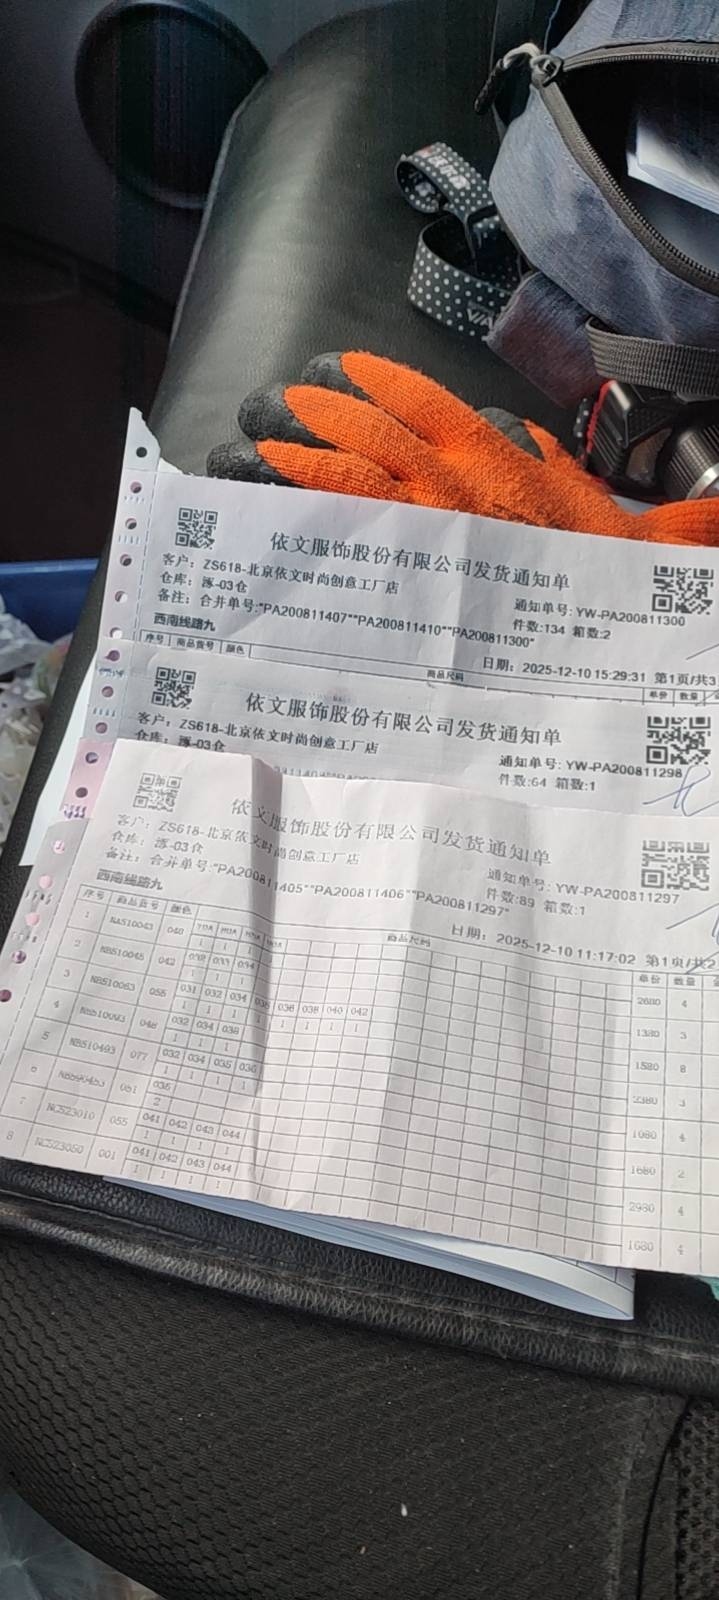 依文服饰股份有限公司发货通知单
客户：ZS618-北京依文时尚创意工厂店
仓库：涿-03仓
通知单号：YW-PA200811300
备注：合并单号："PA200811407""PA200811410""PA200811300"
件数:134 箱数:2
西南线路九
日期：2025-12-10 15:29:31 第1页/共3
序号 商品货号 颜色 商品尺码 单价 数量
依文服饰股份有限公司发货通知单
客户：ZS618-北京依文时尚创意工厂店
仓库：涿-03仓
通知单号：YW-PA200811298
件数:64 箱数:1
依文服饰股份有限公司发货通知单
客户：ZS618-北京依文时尚创意工厂店
仓库：涿-03仓
通知单号：YW-PA200811297
备注：合并单号："PA200811405""PA200811406""PA200811297"
件数:89 箱数:1
西南线路九
日期：2025-12-10 11:17:02 第1页/共2
序号 商品货号 颜色 商品尺码 单价 数量
1 NA510043 048 2680 4
1 1 1 1
2 NB510045 042 032 033 034 1380 3
1 1 1
3 NB510063 055 031 032 034 035 036 038 040 042 1580 8
1 1 1 1 1 1 1 1
4 NB510093 048 032 034 038 2380 3
1 1 1
5 NB510493 077 032 034 035 036 1080 4
1 1 1 1
6 051 036 1680 2
2
7 NC523010 055 041 042 043 044 2980 4
1 1 1 1
8 NC523050 001 041 042 043 044 1680 4
1 1 1 1